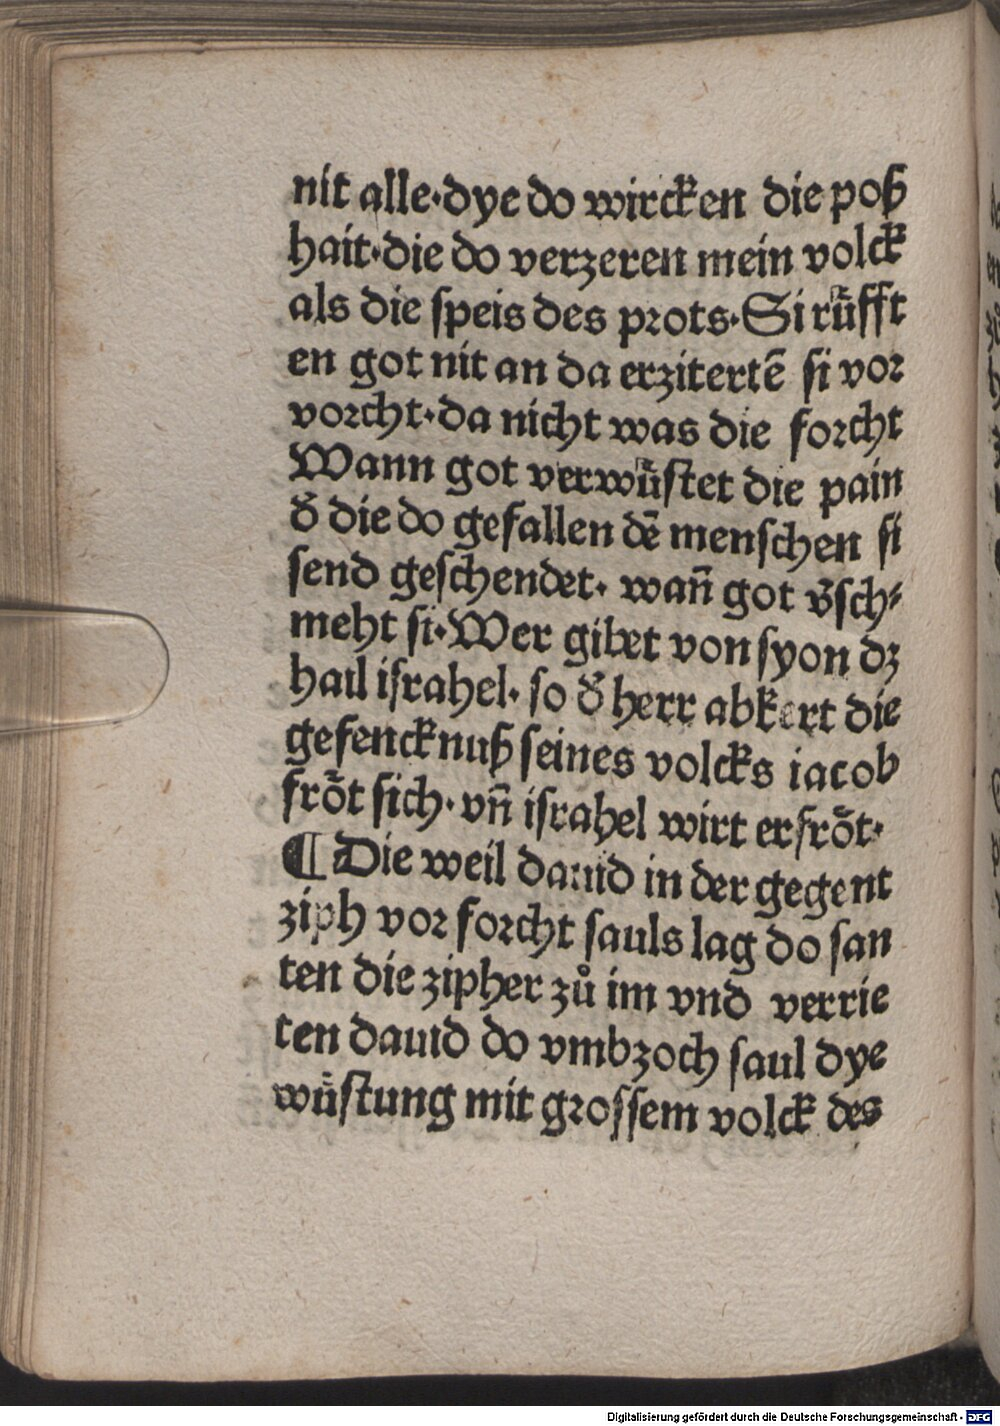 nit alle·dye do wircken die poß
hait·die do verzeren mein volck
als die ſpeis des prots·Si růfft
en got nit an da erzitertē ſi vor
vorcht·da nicht was die forcht
Wann got verwůſtet die pain
ď die do gefallen dē menſchen ſi
ſend geſchendet· wan̄ got v̄ſch⸗
meht ſi·Wer gibet von ſyon dz
hail iſrahel· ſo ď herr abkert die
gefencknuß ſeines volcks iacob
frõt ſich· vn̄ iſrahel wirt erfrõt·
¶ Die weil dauid in der gegent
ziph vor forcht ſauls lag do ſan
ten die zipher zů im vnd verrie
ten dauid do vmbzoch ſaul dye
wůſtung mit groſſem volck des
Digitalisierung gefördert durch die Deutsche Forschungsgemeinschaft - DFG